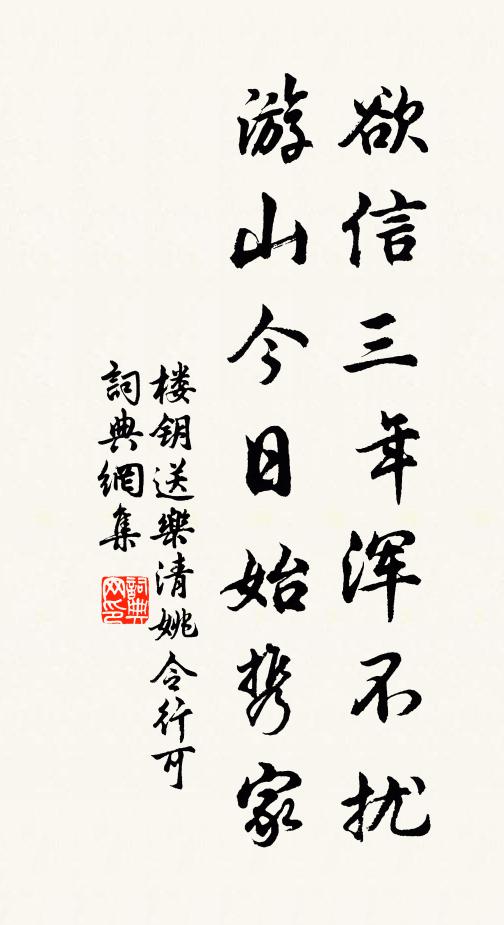 欲信三年浑不扰
游山今日始携家
楼钥送樂清姚令行可
詞典網集
詞典
网印